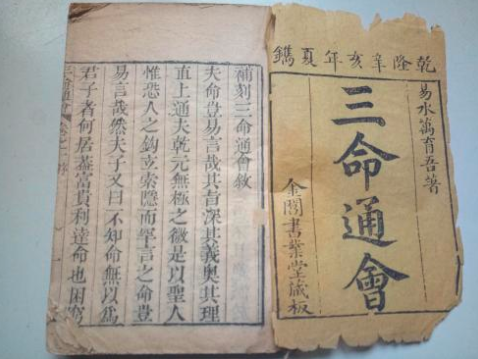 乾隆辛亥年夏鐫
易水萬育吾著
三命通會
金閶書業堂藏板
補刻三命通會敘
夫命豈易言哉其旨深其義奧其理
直上通夫乾元無極之微是以聖人
惟恐人之鉤玄索隱而罕言之命豈
易言哉然夫子又曰不知命無以為
君子者何居蓋富貴利達命也困窮